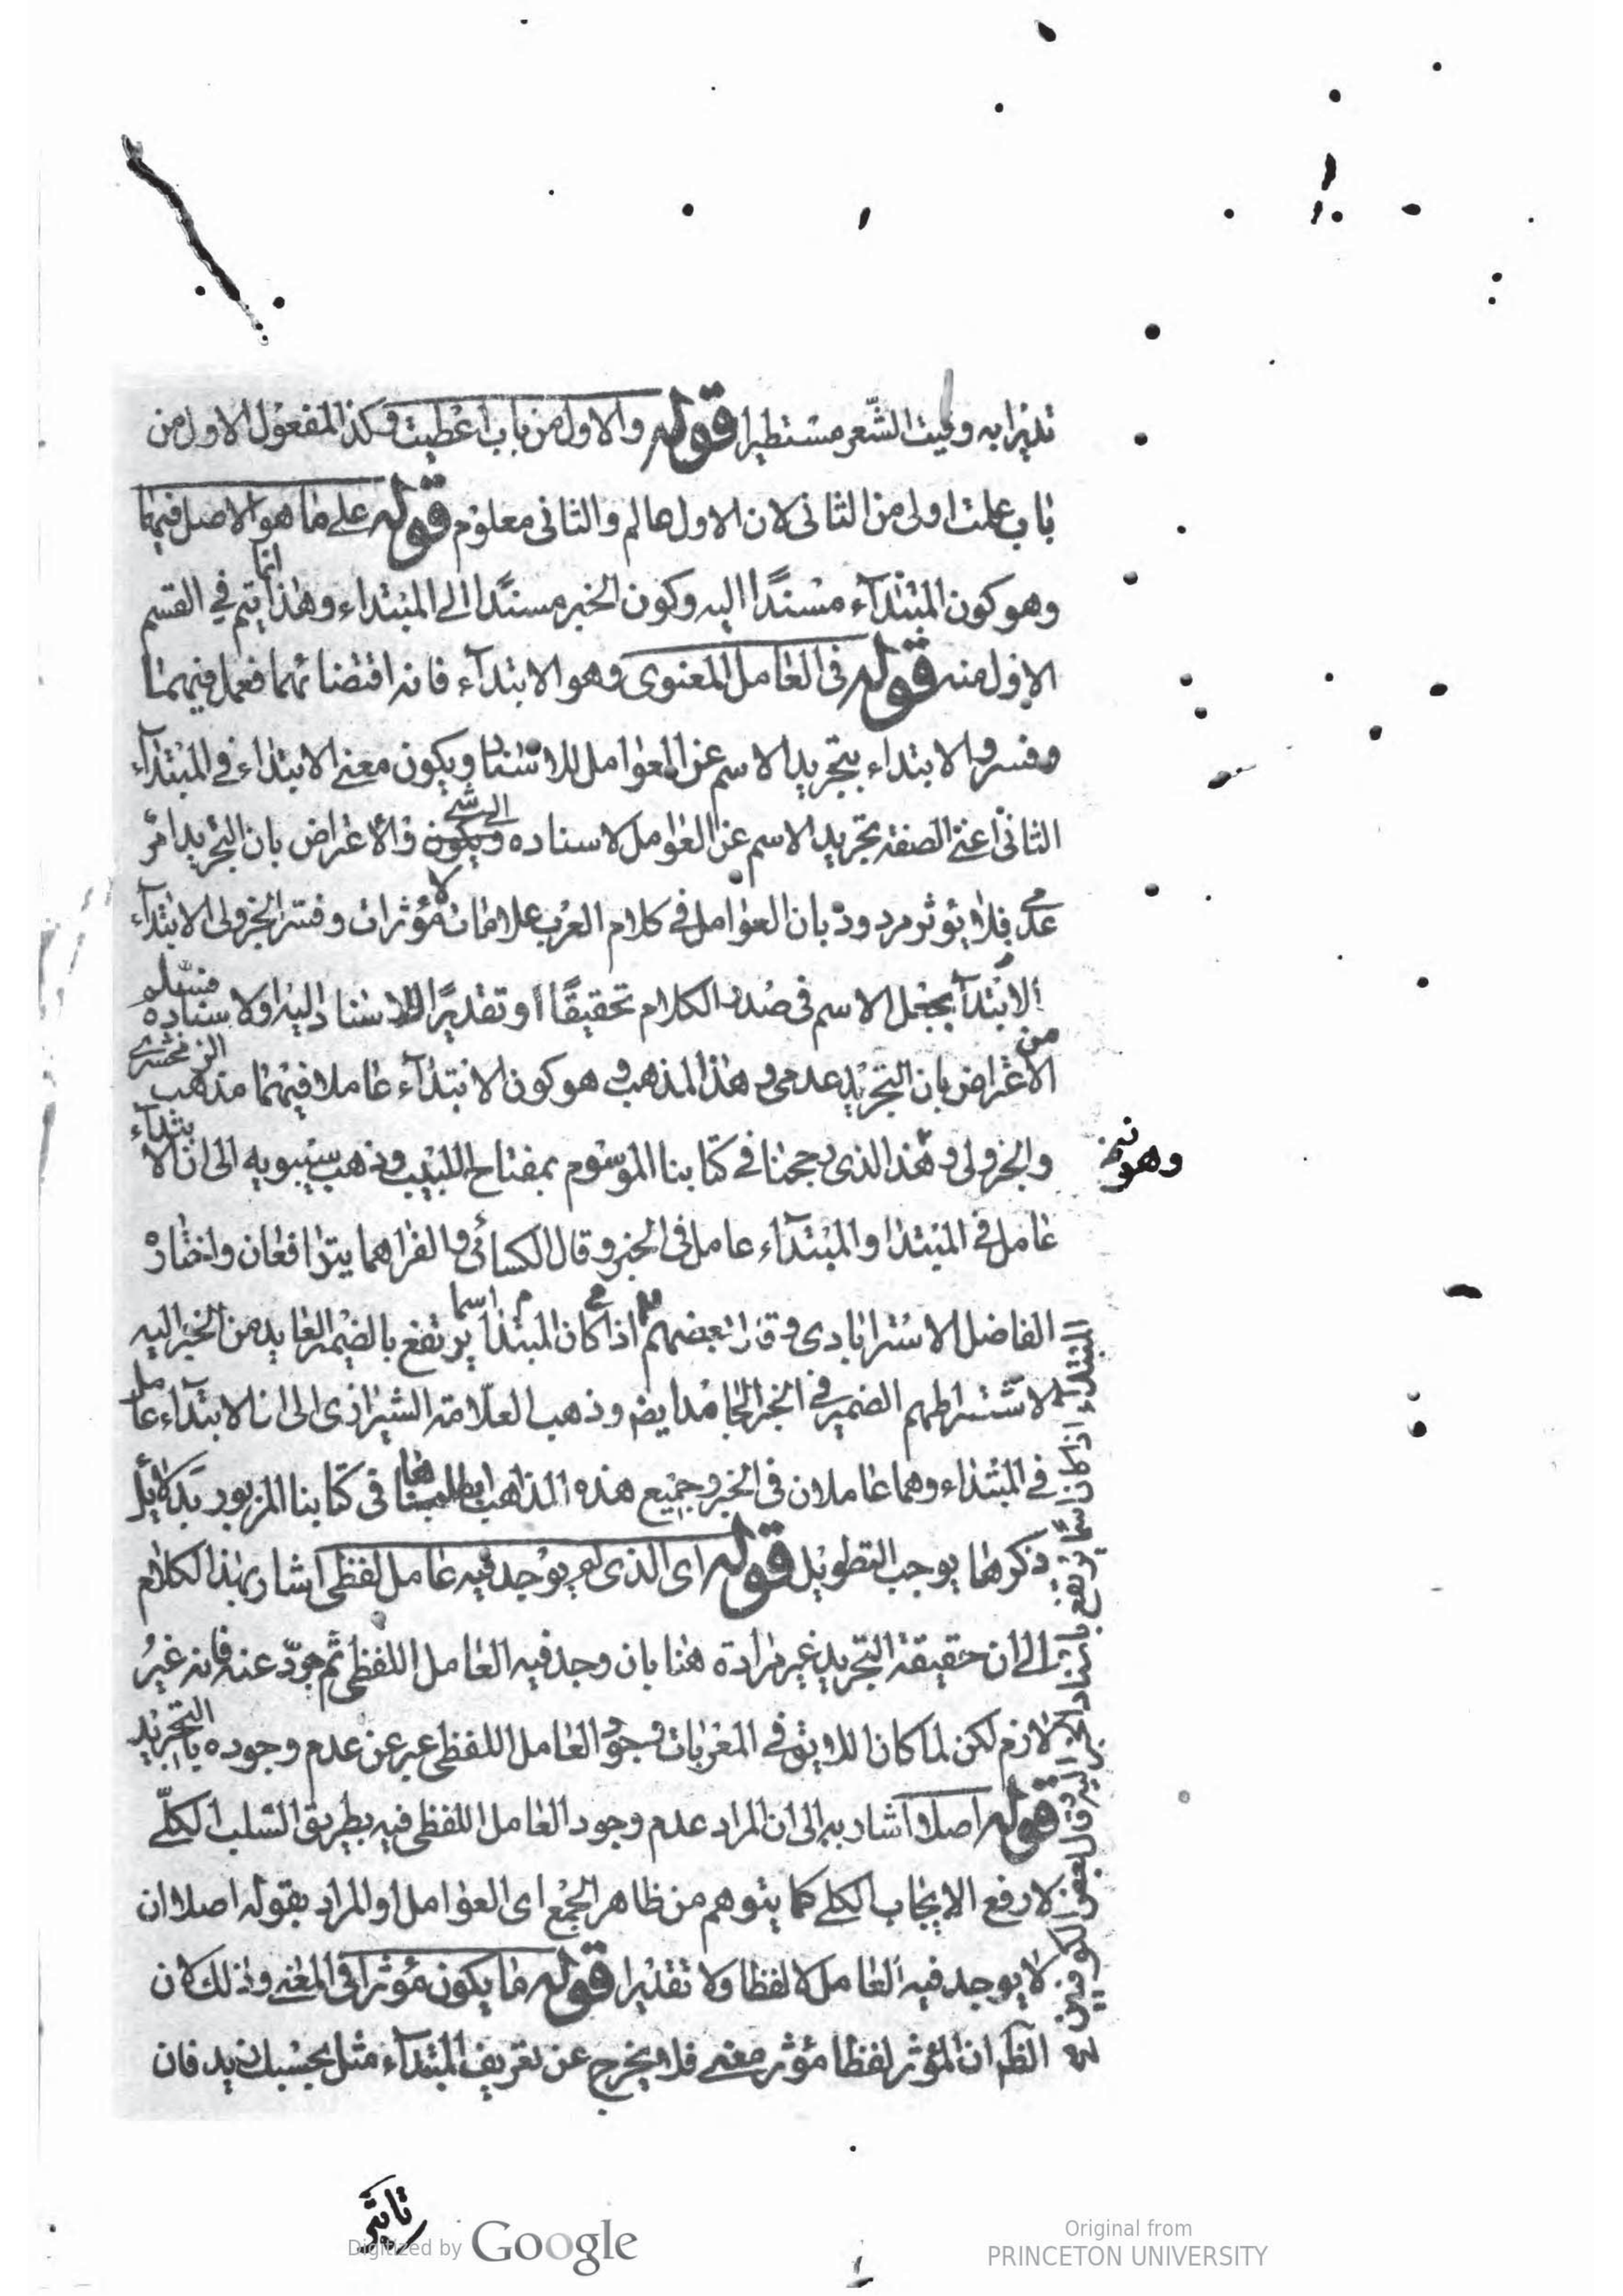 نذيرا به وليت الشعر مستطيرا قوله والاول من باب اعطيت وكذا المفعول الاول من
باب علمت اولى من الثانى لان الاول عالم والثانى معلوم قوله على ما هو الاصل فيهما
وهو كون المبتدآء مسندًا اليه وكون الخبر مسندًا الى المبتداء وهذا انما يتم في القسم
الاول منه قوله فى العامل المعنوى وهو الابتدآء فانه اقتضائهما فعمل فيهما
وفسروا الابتداء بتجريد الاسم عن العوامل للاسناد ويكون معنى الابتداء في المبتدآء
الثانى اعنى الصفة تجريد الاسم عن العوامل لاسناده الى شئ والاعراض بان التجريد امر
عدمى فلا يؤثر مردود بان العوامل في كلام العرب علامات لا مؤثرات وفسر الجزولى الابتدآء
الابتدآ بجعل الاسم فى صدر الكلام تحقيقًا او تقديرًا للاسناد اليه اولاسناده فسلم
من الاعراض بان التجريد عدمى وهذا المذهب وهو كون الابتدآء عاملا فيهما مذهب الزمخشرى
والجزولى وهذا الذى رجحنا في كتابنا الموسوم بمفتاح اللبيب وذهب سيبويه الى ان الابتدآء
وهو
عامل في المبتدا والمبتدآء عامل فى الخبر وقال الكسائى والفرا هما يترافعان واختاره
الفاضل الاسترابادى وقال بعضهم اذا كان المبتدا اسما يرتفع بالضمير العايد من الخبر اليه
لاشتراطهم الضمير في الخبر الجامد ايضا وذهب العلامة الشيرازى الى ان الابتدآء عامل
في المبتداء وهما عاملان فى الخبر وجميع هذه المذاهب ابطلناها فى كتابنا المزبور بدلائل
ذكرها يوجب التطويل قوله اى الذى لم يوجد فيه عامل لفظى اشار بهذا الكلام
الى ان حقيقة التجريد غير مرادة هنا بان وجد فيه العامل اللفظى ثم جرّد عنه فانه غير
لازم لكن لما كان اللايق في المعربات وجود العامل اللفظى عبر عن عدم وجوده بالتجريد
قوله اصلا واشار به الى ان المراد عدم وجود العامل اللفظى فيه بطريق السلب الكلّى
لا رفع الايجاب الكلى كما يتوهم من ظاهر الجمع اى العوامل او المراد بقوله اصلا ان
لا يوجد فيه العامل لا لفظا ولا تقديرا قوله ما يكون مؤثرا فى المعنى وذلك لان
الظ ان المؤثر لفظا مؤثر معنى فلا يخرج عن تعريف المبتدآء مثل بحسبك زيد فان
المبتداء اذا كان اسما يرتفع باسناد الخبر اليه وقال بعض الكوفيين
تاثير
Digitized by Google
Original from
PRINCETON UNIVERSITY